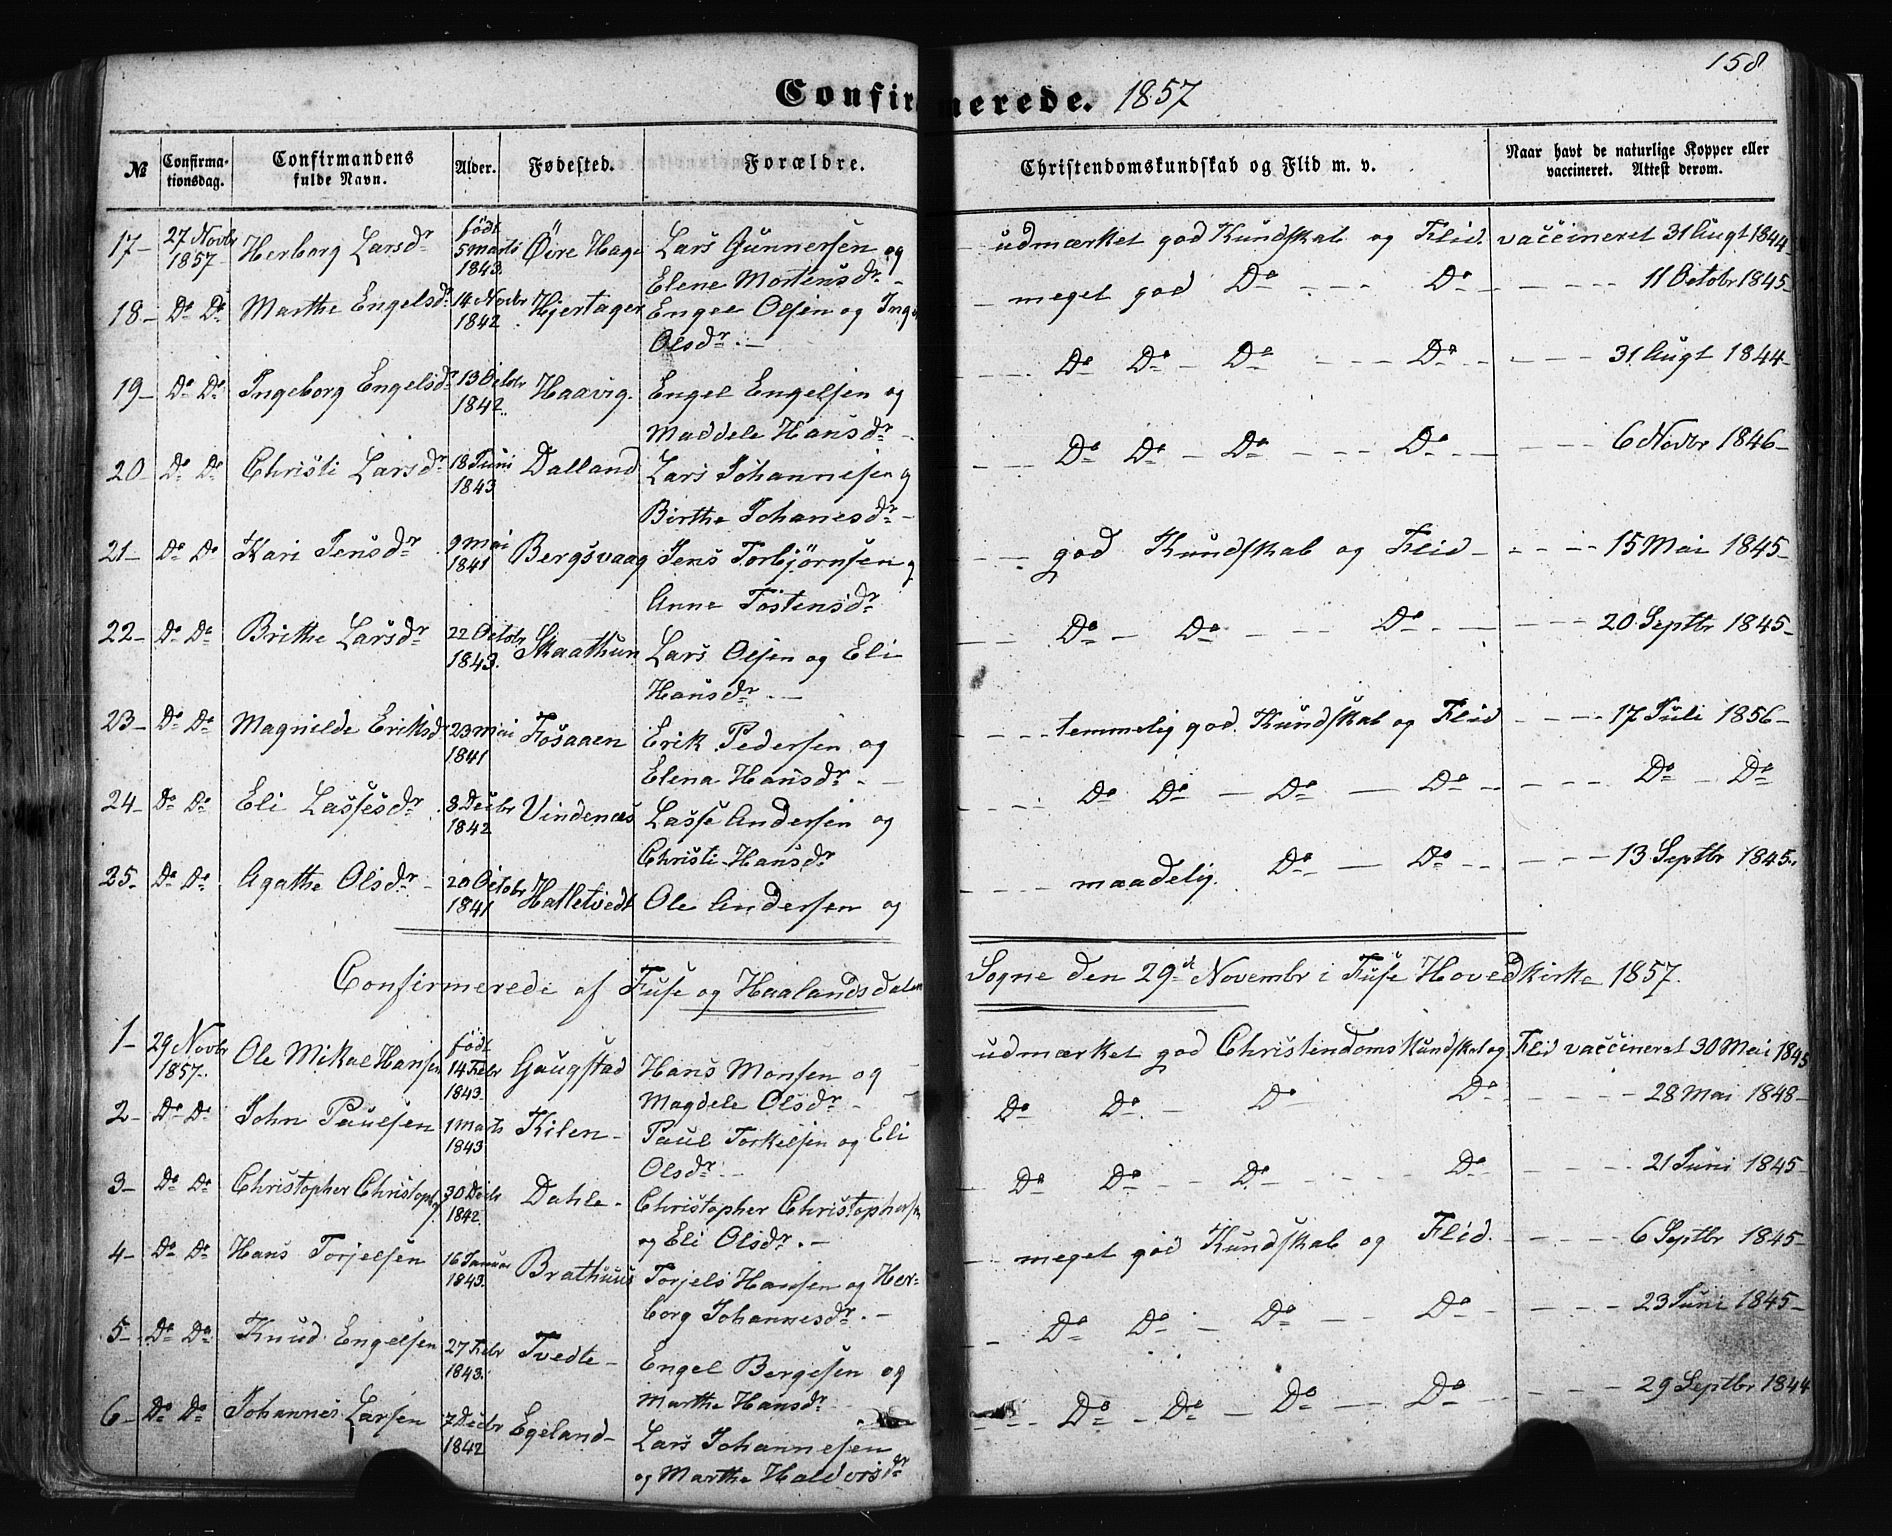 158
Confirmerede. 1857
№ Confirmationsdag. Confirmandens fulde Navn. Alder. Fødested. Forældre. Christendomskundskab og Flid m. v. Naar havt de naturlige Kopper eller vaccineret. Attest derom.
17- 27 Novbr 1857 Herborg Larsdr født 5 Marts 1843. Øvre Hage Lars Gunnersen og Elene Mortensdr. - udmærket god Kundskab og Flid. vaccineret 31 Augt 1844-
18- Do Do Marthe Engelsdr. 14 Novbr 1842 Hjertager Engel Olsen og Inga Olsdr. - meget god Do Do 11 Octobr 1845-
19- Do Do Ingeborg Engelsdr. 13 Octobr 1842. Haavig. Engel Engelsen og Maddele Hansdr. - Do Do Do Do 31 Augt 1844-
20- Do Do Christi Larsdr. 18 Juni 1843 Dalland Lars Johannesen og Birthe Johanesdr. - Do Do Do Do 6 Novbr 1846-
21- Do Do Kari Jensdr. 9 Mai 1841 Bergsvaag Jens Torbjörnsen og Anne Tostensdr. god Kundskab og Flid - 15 Mai 1845-
22- Do Do Brithe Larsdr. 22 Octobr 1843. Skaathun Lars Olsen og Eli Hansdr. - Do Do Do 20 Septbr 1845-
23- Do Do Magnilde Eriksd 23 Mai 1841 Fosaaen Erik Pedersen og Elena Hansdr. - temmelig god Kundskab og Flid 17 Juli 1856-
24- Do Do Eli Lassesdr. 8 Decbr 1842 Vindenæs Lasse Andersen og Christi Hansdr. Do Do Do Do Do Do
25. Do Do Agathe Olsdr. - 20 Octobr 1841 Halletvedt Ole Andersen og maadelig Do Do 13 Septbr 1845.
Confirmerede af Fuse og Haalandsdalen Sogne den 29de Novembr i Fuse Hovedkirke 1857.
1- 29 Novbr 1857. Ole Mikal Hansen født 14 Febr 1843. Gaugstad Hans Monsen og Magdele Olsdr. - udmærket god Christendomskundskab og Flid vaccineret 30 Mai 1845
2- Do Do John Paulsen 1 Marts 1843 Kilen - Paul Torkelsen og Eli Olsdr. - Do Do Do Do 28 Mai 1848-
3- Do Do Christopher Christophs. 30 Decbr 1842. Dahle - Christopher Christophersen og Eli Olsdr. - Do Do Do Do 21 Juni 1845-
4- Do Do Hans Torjelsen 16 Januar 1843. Brathuus Torjels Hansen og Herborg Johannesdr. - meget god Kundskab og Flid. 6 Septbr 1845-
5- Do Do Knud Engelsen 27 Febr 1843. Tvedte - Engel Bergesen og Marthe Hansdr. Do Do Do Do 23 Juni 1845-
6- Do Do Johannes Larsen 2 Decbr 1842 Egeland - Lars Johannesen og Marthe Haldorsdr. Do Do Do Do 29 Septbr 1844